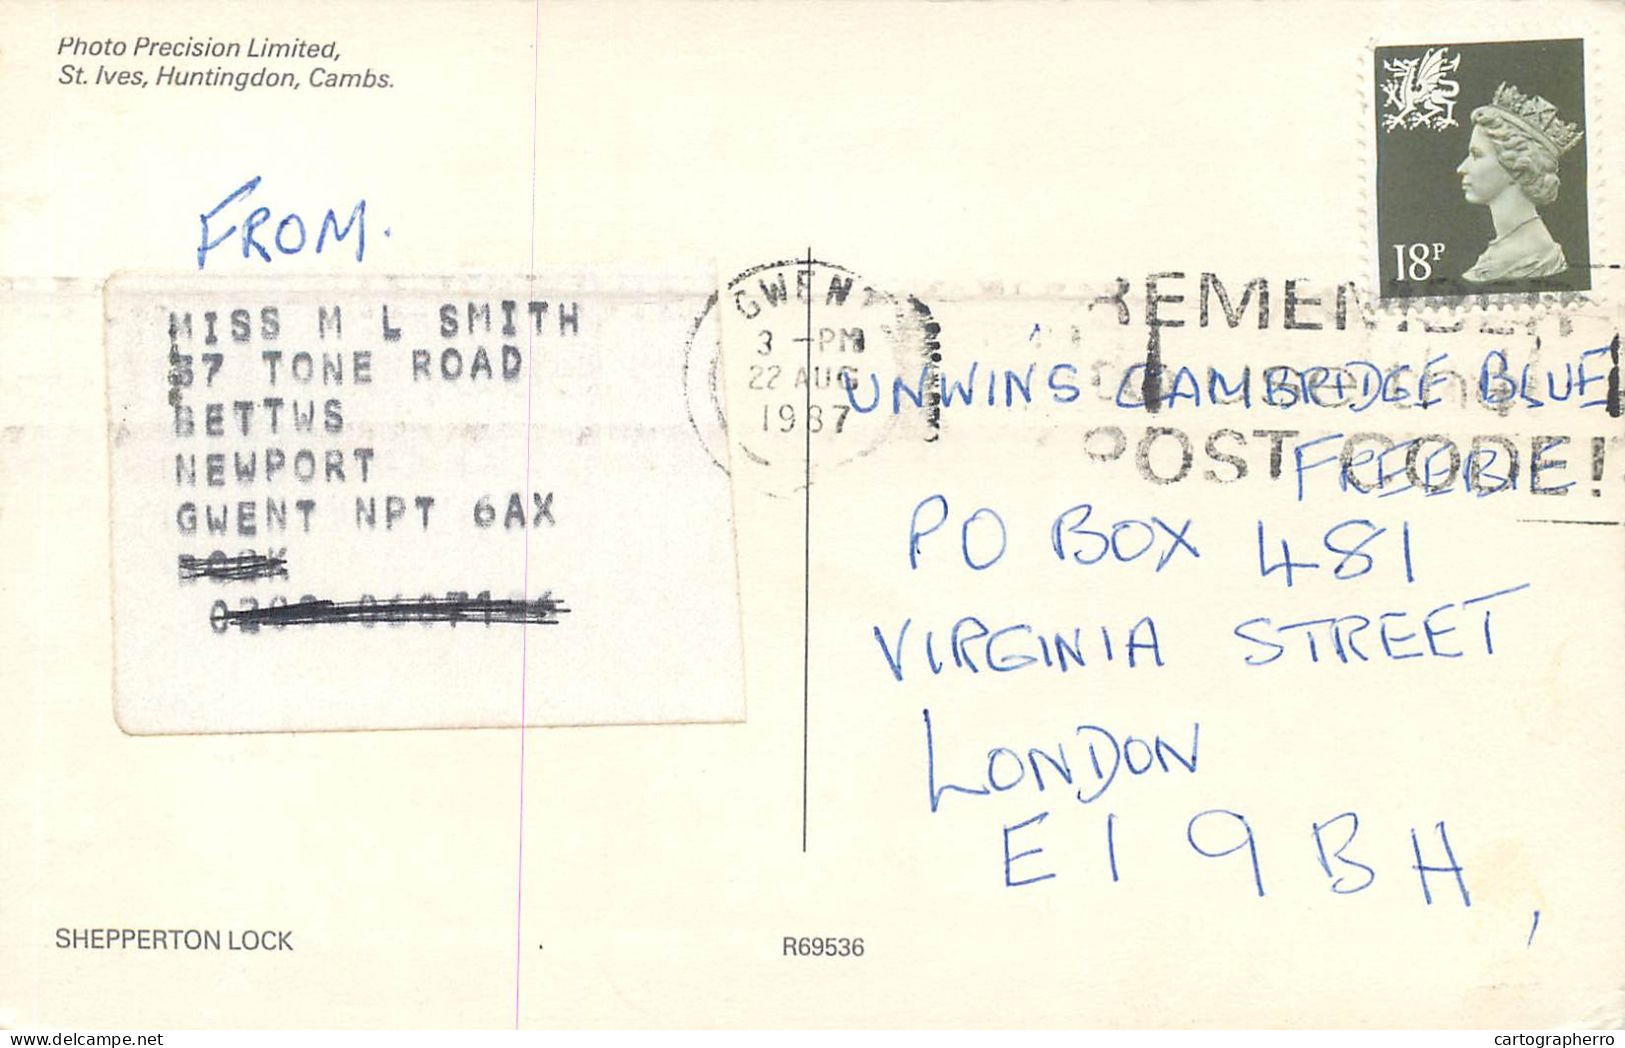 Photo Precision Limited,
St. Ives, Huntingdon, Cambs.
18P
FROM.
MISS M L SMITH
37 TONE ROAD
BETTWS
NEWPORT
GWENT NPT 6AX
GWENT
3 -PM
22 AUG
1987
REMEMBER
to use the
POST CODE!
UNWIN'S CAMBRIDGE BLUE
FREEBIE
PO BOX 481
VIRGINIA STREET
LONDON
E1 9BH,
SHEPPERTON LOCK
R69536
cartographerro